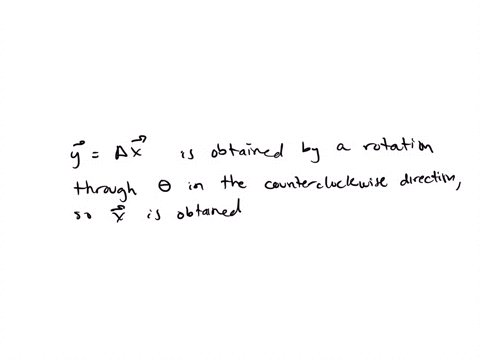 y⃗ = Ax⃗ is obtained by a rotation
through θ in the counterclockwise direction,
so x⃗ is obtained